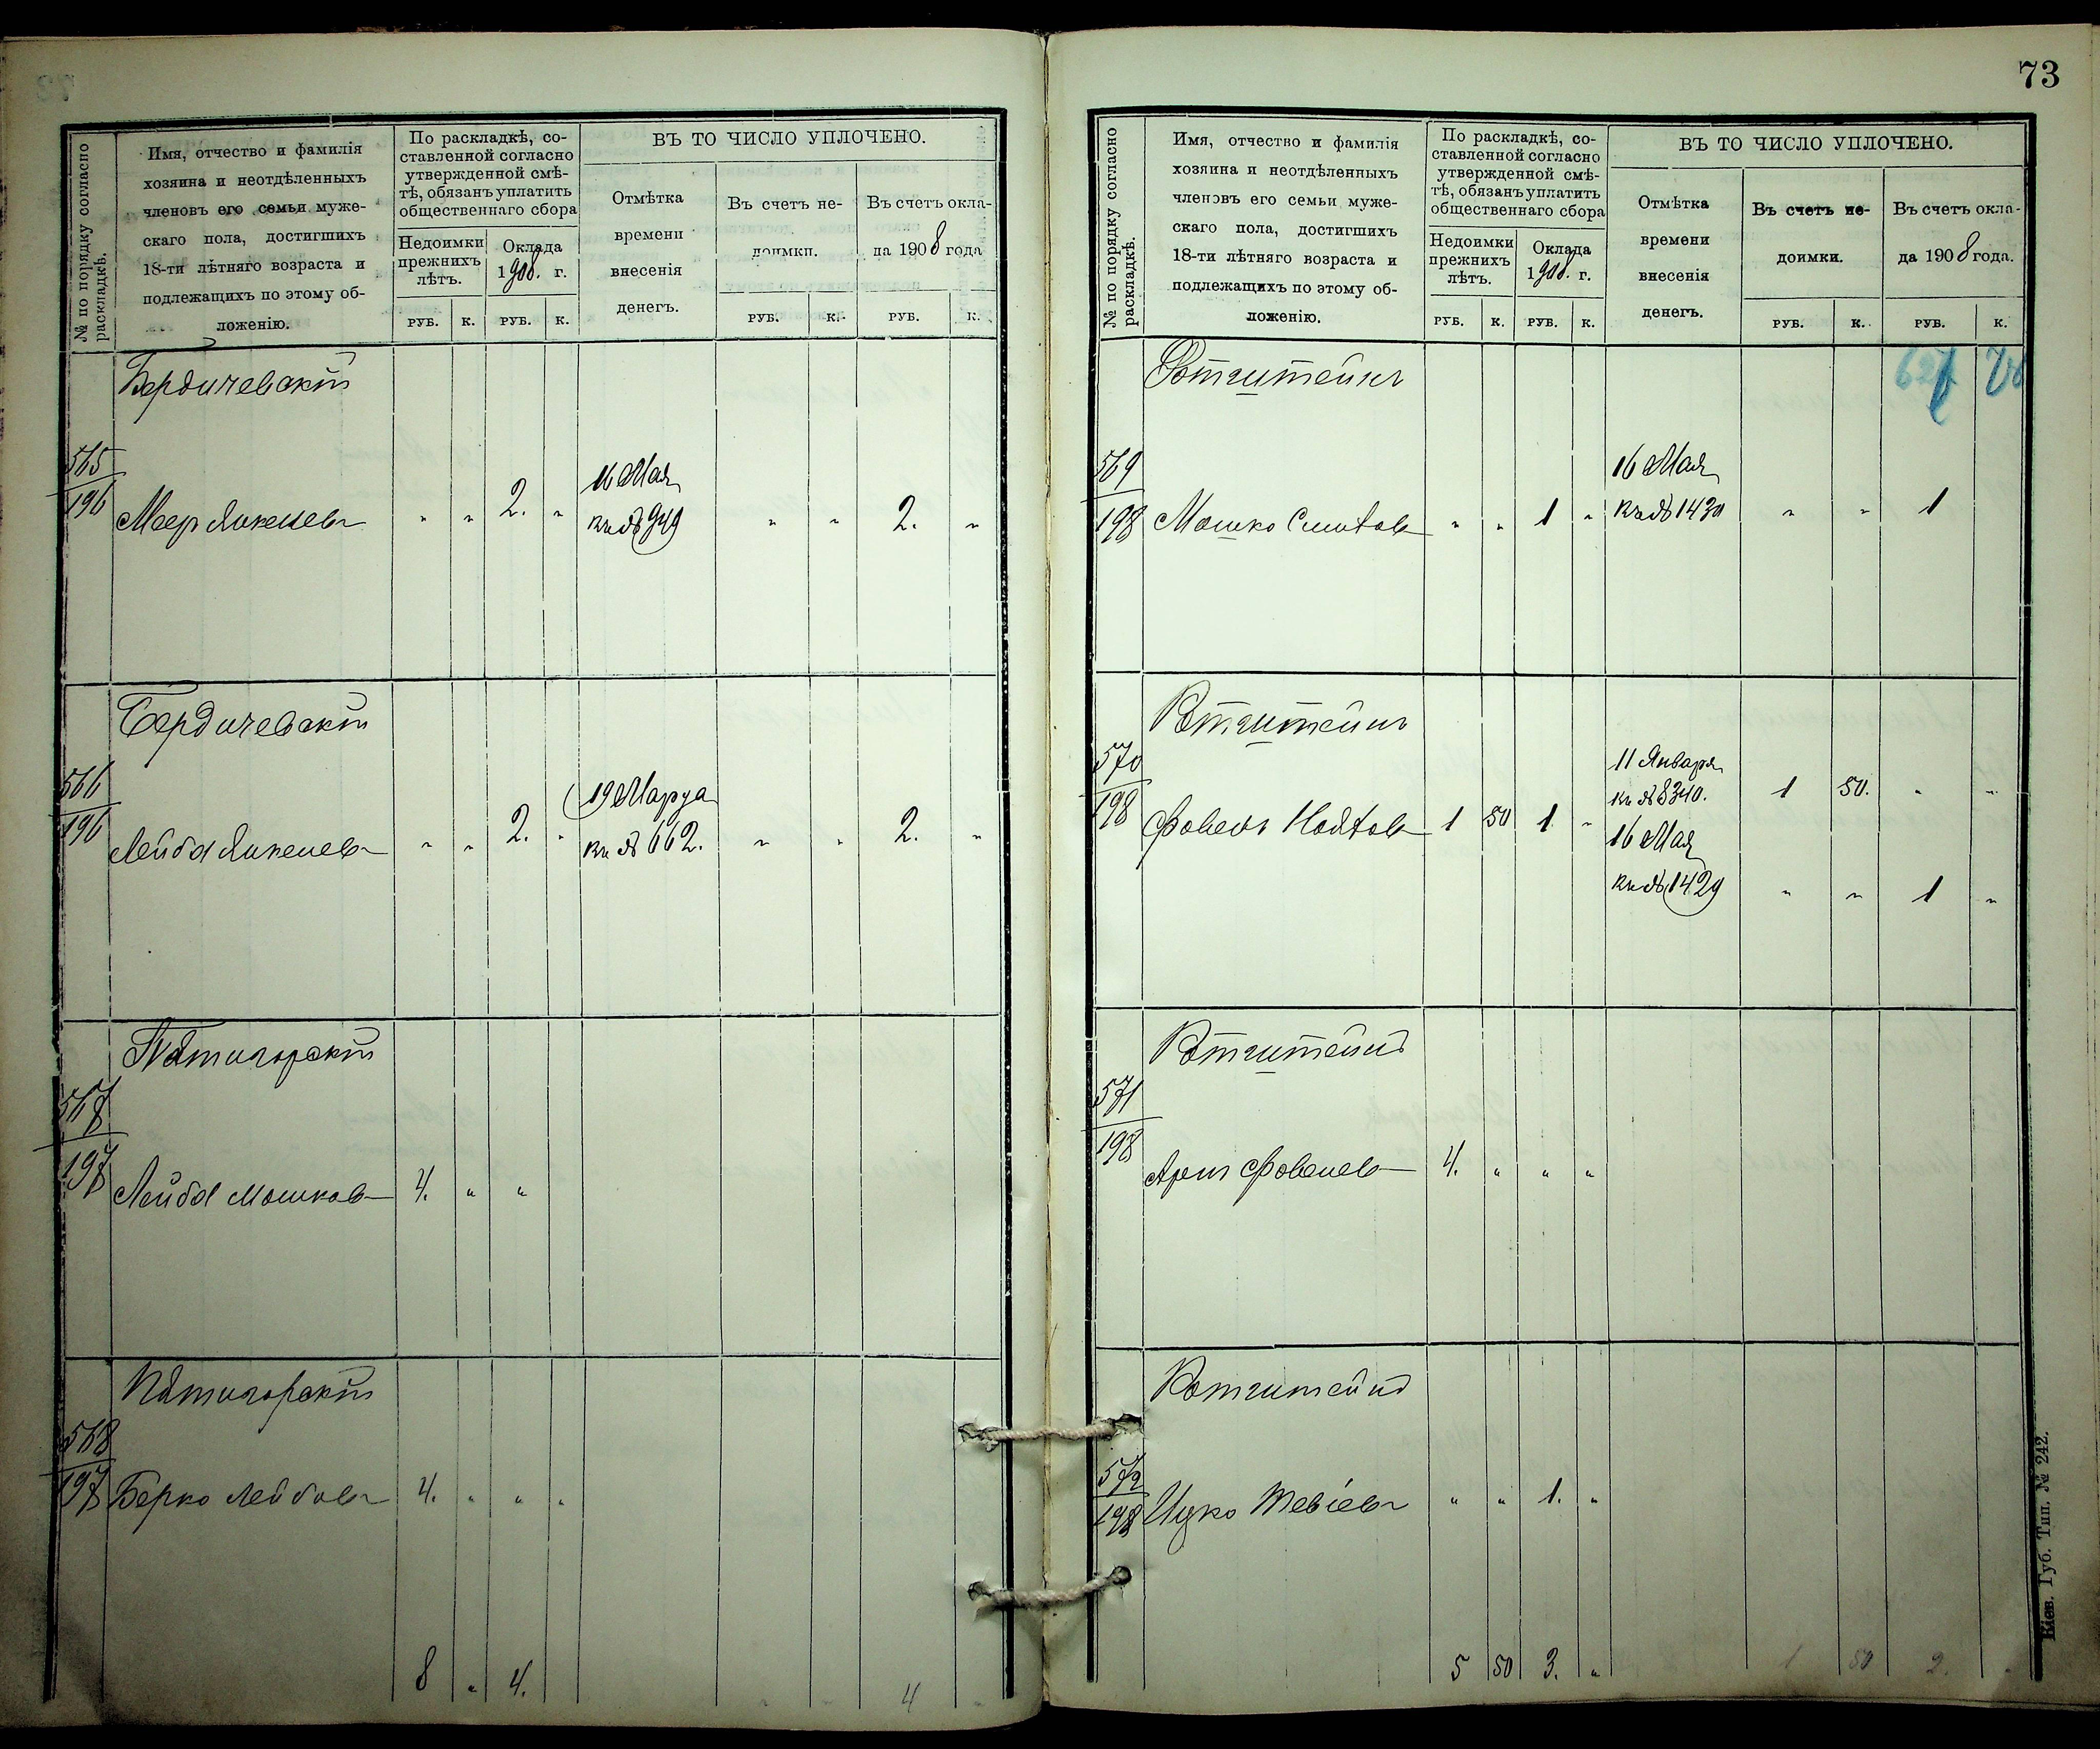 73
№ по порядку согласно раскладкѣ.
Имя, отчество и фамилія
хозяина и неотдѣленныхъ
членовъ его семьи муже-
скаго пола, достигшихъ
18-ти лѣтняго возраста и
подлежащихъ по этому об-
ложенію.
По раскладкѣ, со-
ставленной согласно
утвержденной смѣ-
тѣ, обязанъ уплатить
общественнаго сбора
Недоимки
прежнихъ
лѣтъ.
Оклада
1908. г.
РУБ. К. РУБ. К.
ВЪ ТО ЧИСЛО УПЛОЧЕНО.
Отмѣтка
времени
внесенія
денегъ.
Въ счетъ не-
доимки.
Въ счетъ окла-
да 1908 года
РУБ. К. РУБ. К.
Бердичевскій
565
196
Меер Янкелев " " 2. "
16 Мая
кв № 949
" " 2. "
Бердичевскій
566
196
Лейба Янкелев " " 2. "
19 Марта
кв № 662.
" " 2. "
Пятигорскій
567
197
Лейба Мошков 4. " "
Пятигорскій
568
197
Берко Лейбов 4. " " "
8 " 4.
4
№ по порядку согласно раскладкѣ.
Имя, отчество и фамилія
хозяина и неотдѣленныхъ
членовъ его семьи муже-
скаго пола, достигшихъ
18-ти лѣтняго возраста и
подлежащихъ по этому об-
ложенію.
По раскладкѣ, со-
ставленной согласно
утвержденной смѣ-
тѣ, обязанъ уплатить
общественнаго сбора
Недоимки
прежнихъ
лѣтъ.
Оклада
1908. г.
РУБ. К. РУБ. К.
ВЪ ТО ЧИСЛО УПЛОЧЕНО.
Отмѣтка
времени
внесенія
денегъ.
Въ счетъ не-
доимки.
Въ счетъ окла-
да 1908 года.
РУБ. К. РУБ. К.
Ротштейнъ
569
198
Мошко " " 1 "
16 Мая
кв № 1430
" " 1
Ротштейнъ
570
198
1 50 1 "
11 Января
кв № 8340.
1 50. " "
16 Мая
кв № 1429
" " 1 "
Ротштейнъ
571
198
4. " " "
Ротштейнъ
572
198
Ицко Тевіев " " 1. "
5 50 3. "
1 50 2.
Кіев. Губ. Тип. № 242.